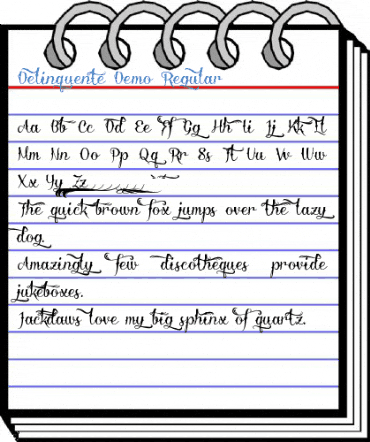 Delinquente Demo Regular
Aa Bb Cc Dd Ee Ff Gg Hh Ii Jj Kk Ll
Mm Nn Oo Pp Qq Rr Ss Tt Uu Vv Ww
Xx Yy Zz
The quick brown fox jumps over the lazy
dog
Amazingly few discotheques provide
jukeboxes.
Jackdaws love my big sphinx of quartz.